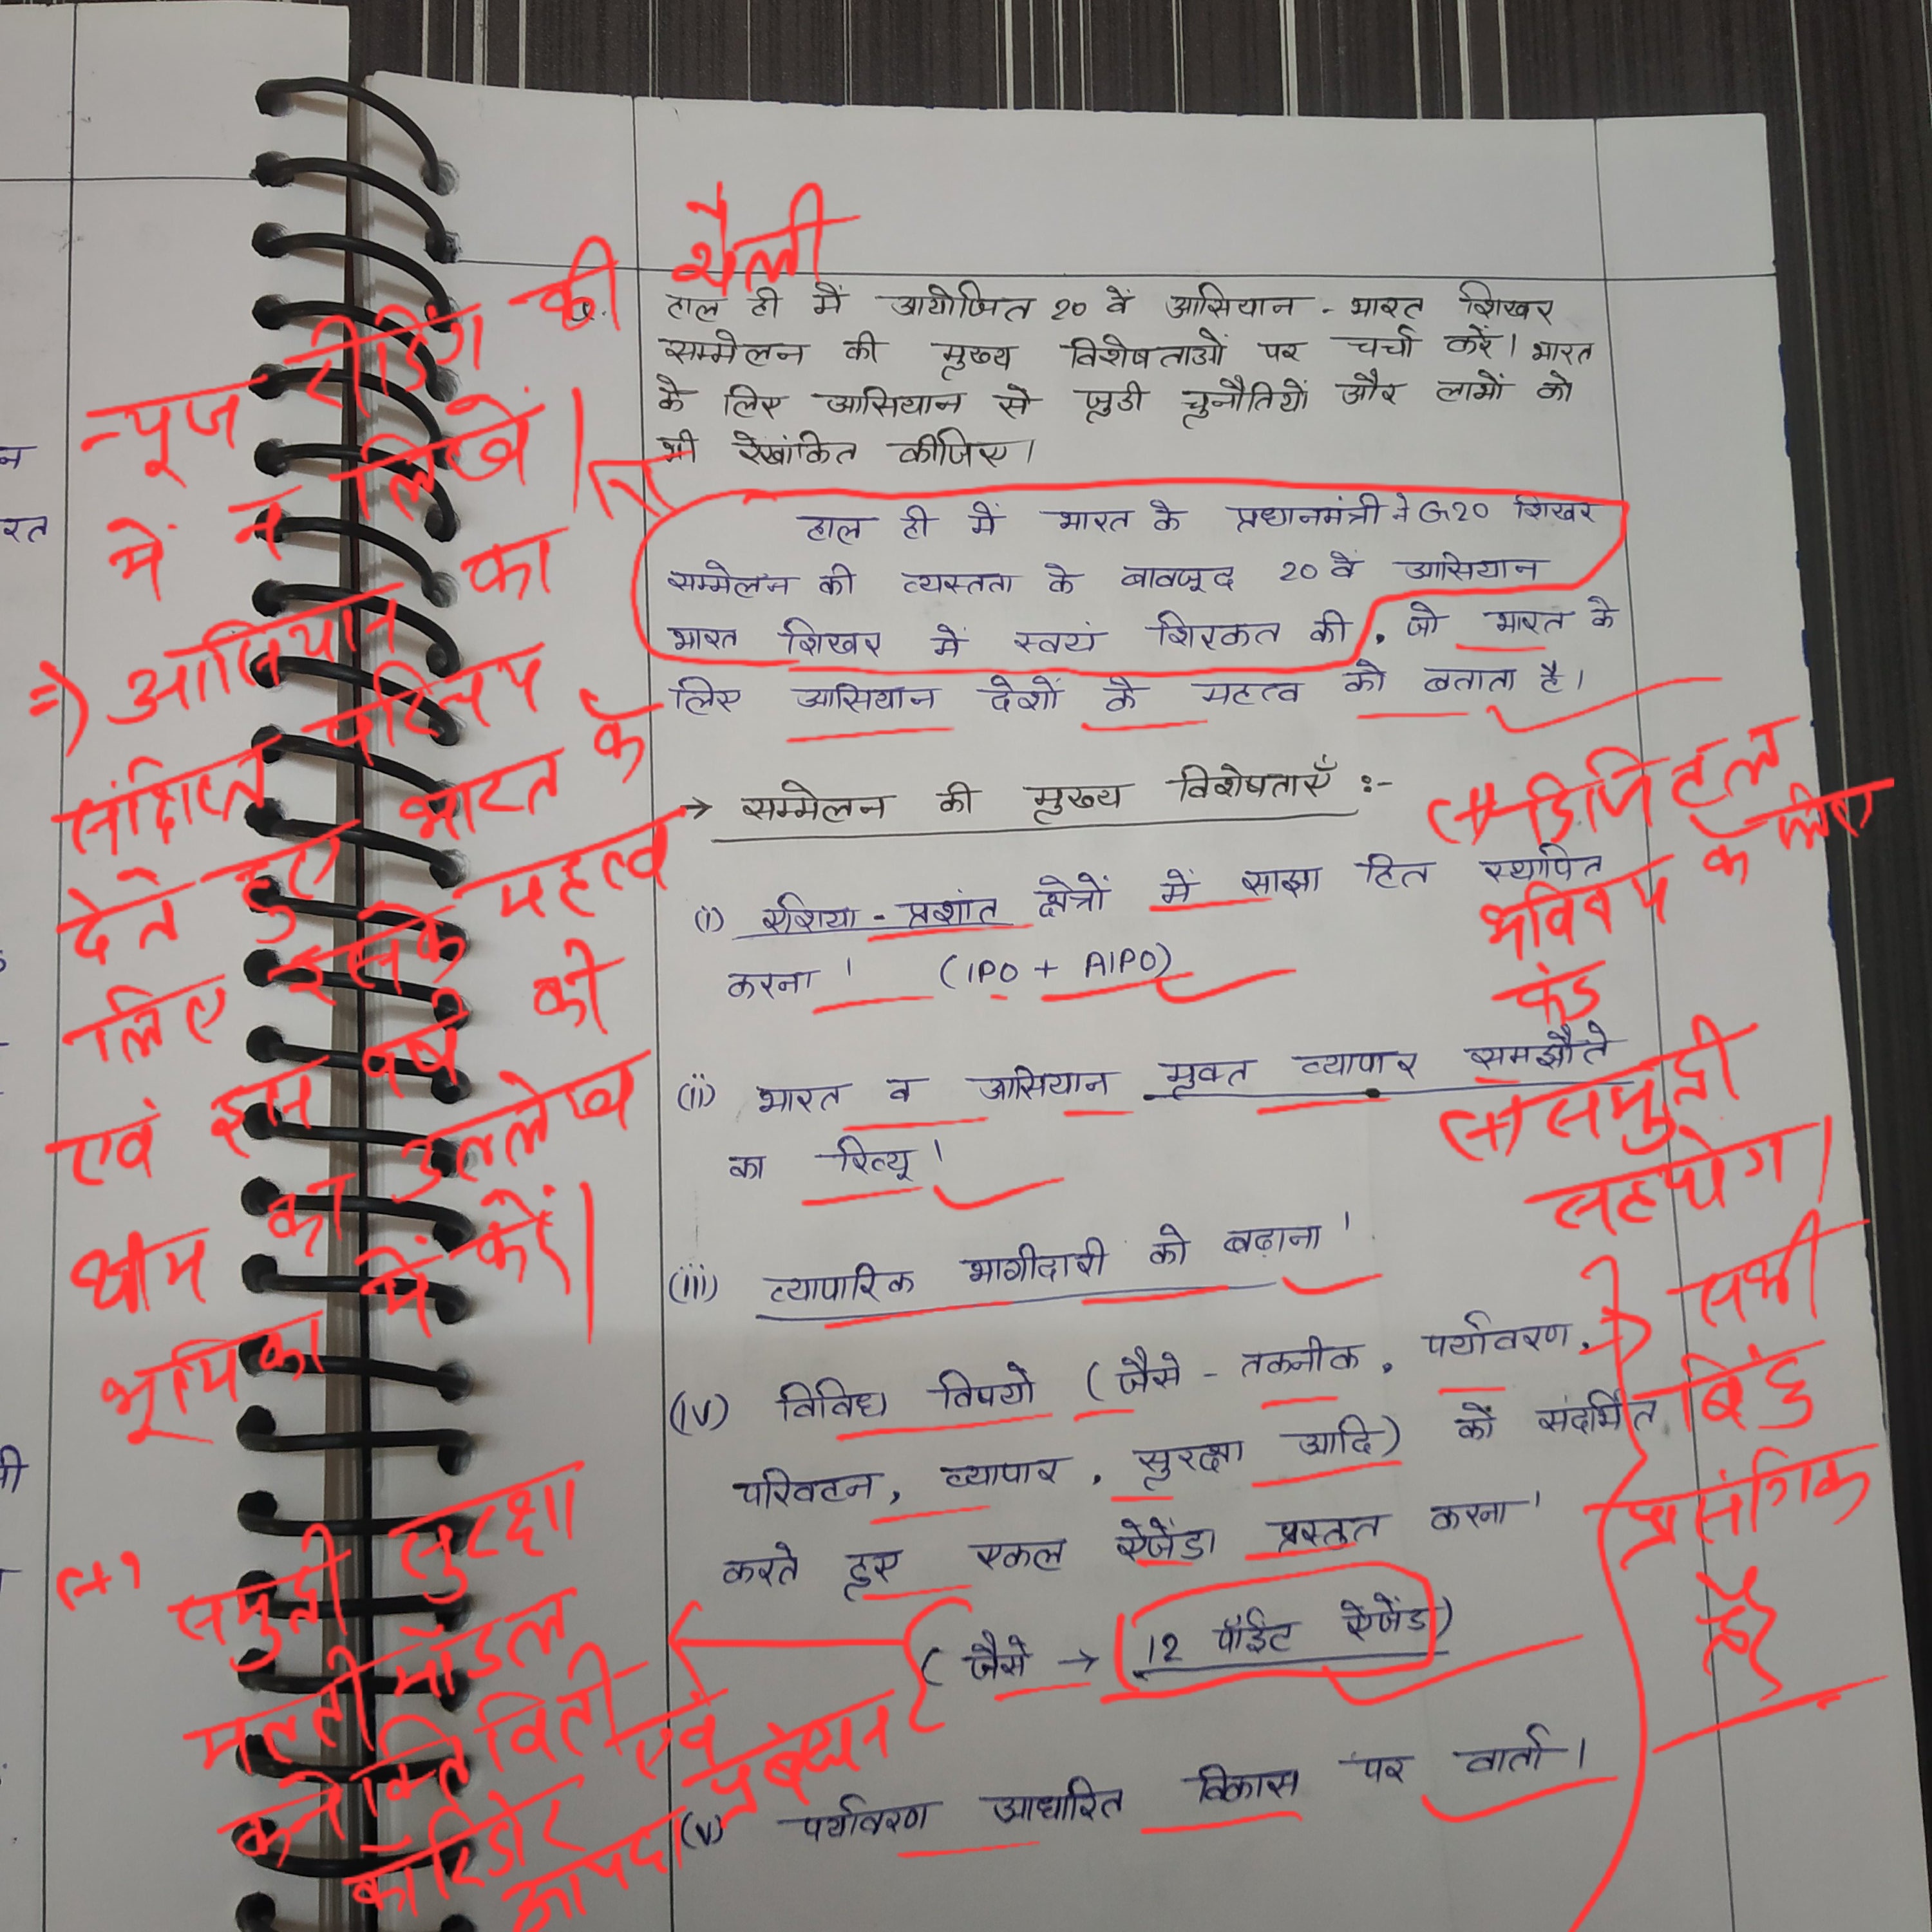 हाल ही में आयोजित 20 वें आसियान - भारत शिखर
सम्मेलन की मुख्य विशेषताओं पर चर्चा करें। भारत
के लिए आसियान से जुडी चुनौतियों और लाभों को
भी रेखांकित कीजिए।
हाल ही में भारत के प्रधानमंत्री ने G20 शिखर
सम्मेलन की व्यस्तता के बावजूद 20 वें आसियान
भारत शिखर में स्वयं शिरकत की, जो भारत के
लिए आसियान देशों के महत्व को बताता है।
→ सम्मेलन की मुख्य विशेषताएँ :-
(i) एशिया - प्रशांत क्षेत्रों में साझा हित स्थापित
करना। (IPO + AIPO)
(ii) भारत व आसियान मुक्त व्यापार समझौते
का रिव्यू।
(iii) व्यापारिक भागीदारी को बढ़ाना।
(iv) विविध विषयो (जैसे - तकनीक, पर्यावरण,
परिवटन, व्यापार, सुरक्षा आदि) को संदर्भित
करते हुए एकल ऐजेंडा प्रस्तुत करना।
(जैसे → 12 पॉइंट ऐजेंड)
(v) पर्यावरण आधारित विकास पर वार्ता।
न्यूज रीडिंग की शैली
में न लिखें।
=) आसियान का
संक्षिप्त परिचय
देते हुए भारत के
लिए इसके महत्व
एवं इस वर्ष की
थीम का उल्लेख
भूमिका में करें।
(+) समुद्री सुरक्षा
मल्टी मॉडल
कनेक्टिविटी
कॉरिडोर एवं
आपदा प्रबंधन
(+) डिजिटल
भविष्य के लिए
फंड
(+) समुद्री
सहयोग।
सभी
बिंदु
प्रासंगिक
है
न
रत